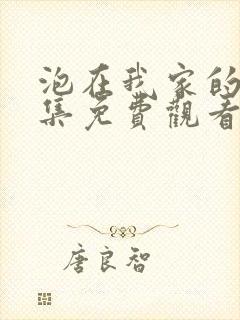 泡在我家的
集免費觀看
唐良智